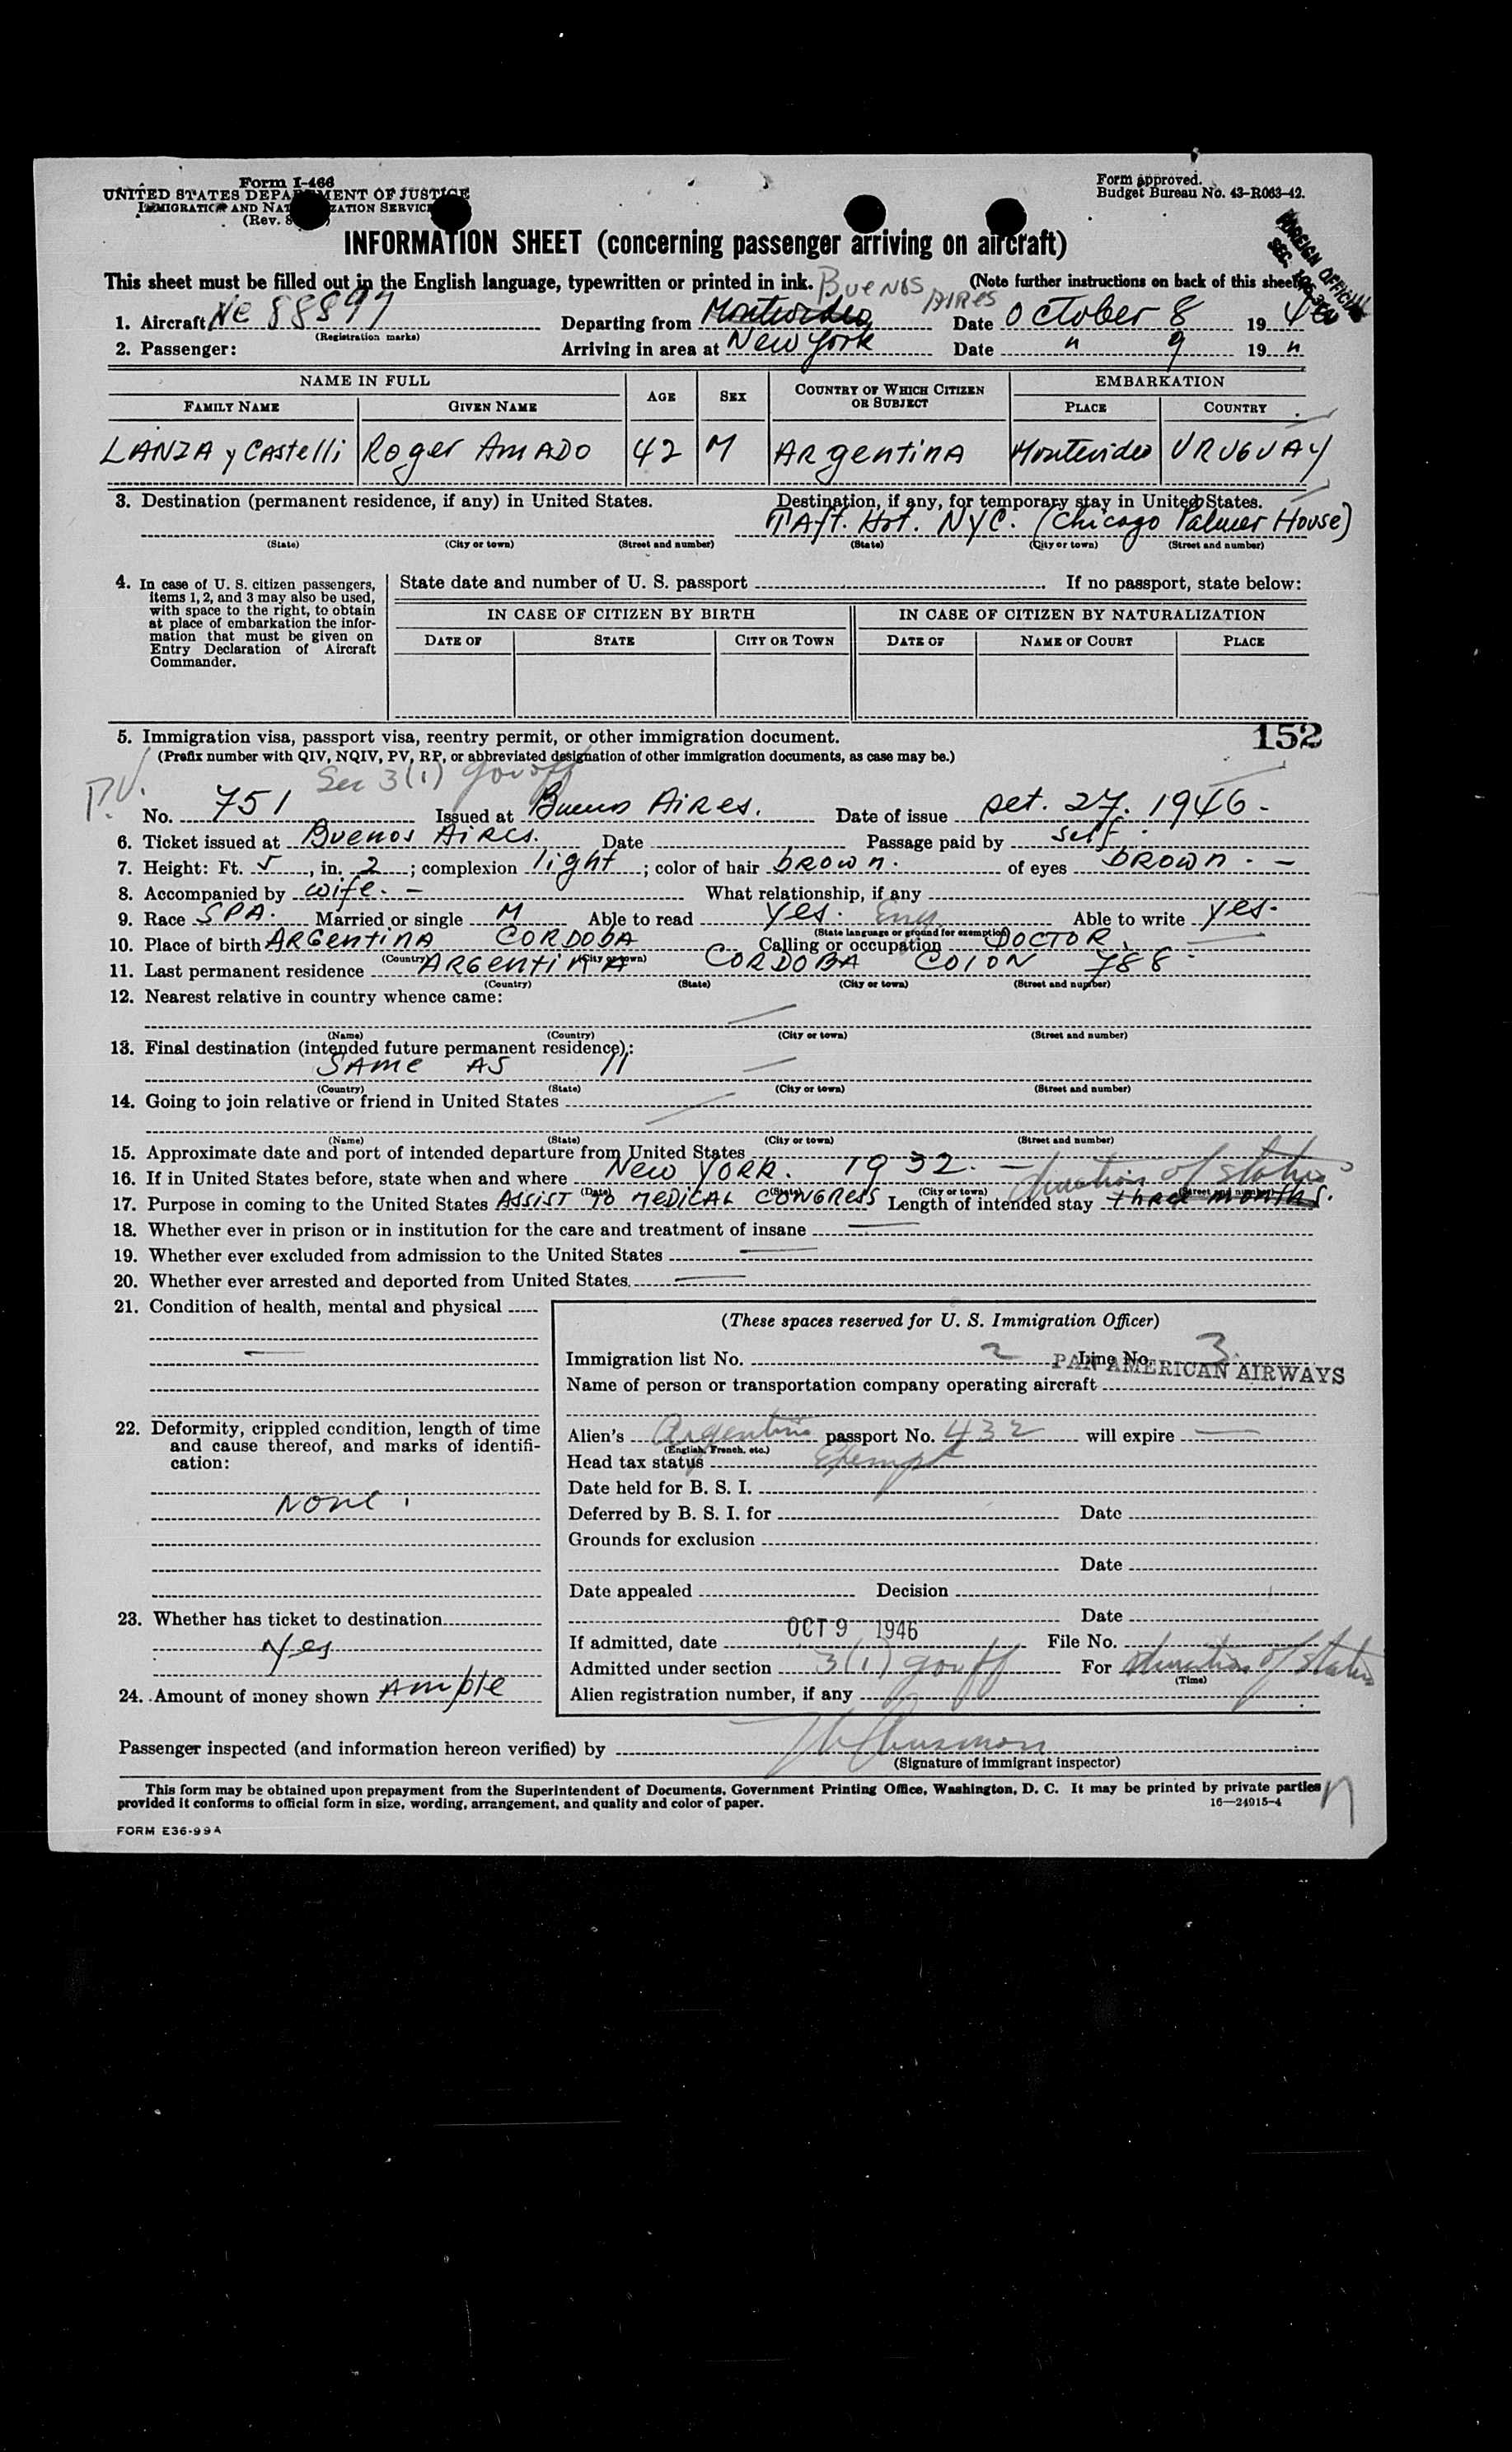 Form I-466
UNITED STATES DEPARTMENT OF JUSTICE
IMMIGRATION AND NATURALIZATION SERVICE
(Rev. 8
Form approved.
Budget Bureau No. 43-R063-42.
FOREIGN OFFICIAL
SEC.
INFORMATION SHEET (concerning passenger arriving on aircraft)
This sheet must be filled out in the English language, typewritten or printed in ink. (Note further instructions on back of this sheet)
BUENOS AIRES
1. Aircraft NC 88897 Departing from Montevideo Date October 8 1946
(Registration marks)
2. Passenger: Arriving in area at New York Date " 9 19 "
NAME IN FULL AGE SEX COUNTRY OF WHICH CITIZEN OR SUBJECT EMBARKATION
FAMILY NAME GIVEN NAME PLACE COUNTRY
LANZA y CAstelli Roger AmADO 42 M ARgentinA Montevideo URUGUAY
3. Destination (permanent residence, if any) in United States. Destination, if any, for temporary stay in United States.
TAft. Hot. NYC. (Chicago Palmer House)
(State) (City or town) (Street and number) (State) (City or town) (Street and number)
4. In case of U. S. citizen passengers, items 1, 2, and 3 may also be used, with space to the right, to obtain at place of embarkation the information that must be given on Entry Declaration of Aircraft Commander.
State date and number of U. S. passport If no passport, state below:
IN CASE OF CITIZEN BY BIRTH IN CASE OF CITIZEN BY NATURALIZATION
DATE OF STATE CITY OR TOWN DATE OF NAME OF COURT PLACE
5. Immigration visa, passport visa, reentry permit, or other immigration document. 152
(Prefix number with QIV, NQIV, PV, RP, or abbreviated designation of other immigration documents, as case may be.)
P.V. Sec 3(1) gov off
No. 751 Issued at Buenos Aires. Date of issue set. 27. 1946 -
6. Ticket issued at Buenos Aires. Date Passage paid by self.
7. Height: Ft. 5, in. 2; complexion light; color of hair brown. of eyes brown. -
8. Accompanied by wife. - What relationship, if any
9. Race SPA. Married or single M Able to read yes. Eng Able to write yes.
(State language or ground for exemption)
10. Place of birth ARGentinA CORDOBA Calling or occupation DOCTOR.
(Country) (City or town)
11. Last permanent residence ARGentinA CORDOBA COLON 788
(Country) (State) (City or town) (Street and number)
12. Nearest relative in country whence came:
(Name) (Country) (City or town) (Street and number)
13. Final destination (intended future permanent residence):
SAME AS 11
(Country) (State) (City or town) (Street and number)
14. Going to join relative or friend in United States
(Name) (State) (City or town) (Street and number)
15. Approximate date and port of intended departure from United States
16. If in United States before, state when and where New YORK. 1932. -
(Date) (State) (City or town) (Street and number)
duration of status
17. Purpose in coming to the United States ASSIST TO MEDICAL CONGRESS Length of intended stay three months.
18. Whether ever in prison or in institution for the care and treatment of insane
19. Whether ever excluded from admission to the United States
20. Whether ever arrested and deported from United States.
21. Condition of health, mental and physical
22. Deformity, crippled condition, length of time and cause thereof, and marks of identification:
None.
23. Whether has ticket to destination
Yes
24. Amount of money shown Ample
(These spaces reserved for U. S. Immigration Officer)
Immigration list No. 2 Line No. 3
PAN AMERICAN AIRWAYS
Name of person or transportation company operating aircraft
Alien's Argentine passport No. 432 will expire
(English, French, etc.)
Head tax status Exempt
Date held for B. S. I.
Deferred by B. S. I. for Date
Grounds for exclusion
Date
Date appealed Decision
Date
If admitted, date OCT 9 1946 File No.
Admitted under section 3(1) gov off For duration of status
(Time)
Alien registration number, if any
Passenger inspected (and information hereon verified) by
(Signature of immigrant inspector)
This form may be obtained upon prepayment from the Superintendent of Documents, Government Printing Office, Washington, D. C. It may be printed by private parties
provided it conforms to official form in size, wording, arrangement, and quality and color of paper. 16—24915-4
FORM E36-99A